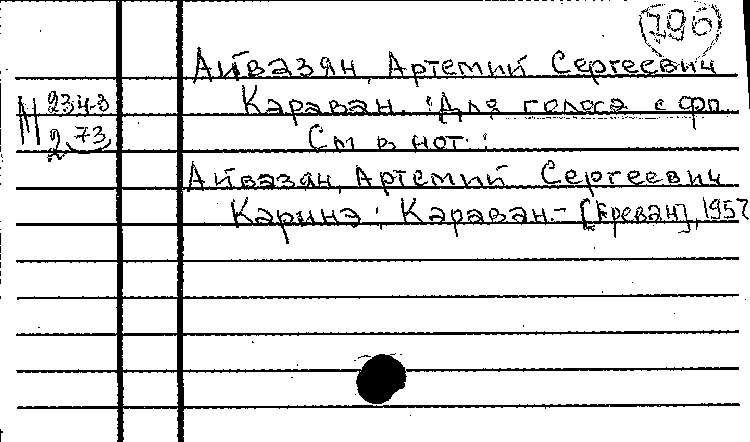 796
Айвазян, Артемий Сергеевич
М 234-3
2.73
Караван. : Для голоса с фп.
См в нот. :
Айвазян, Артемий Сергеевич
Каринэ ; Караван. - [Ереван], 1957